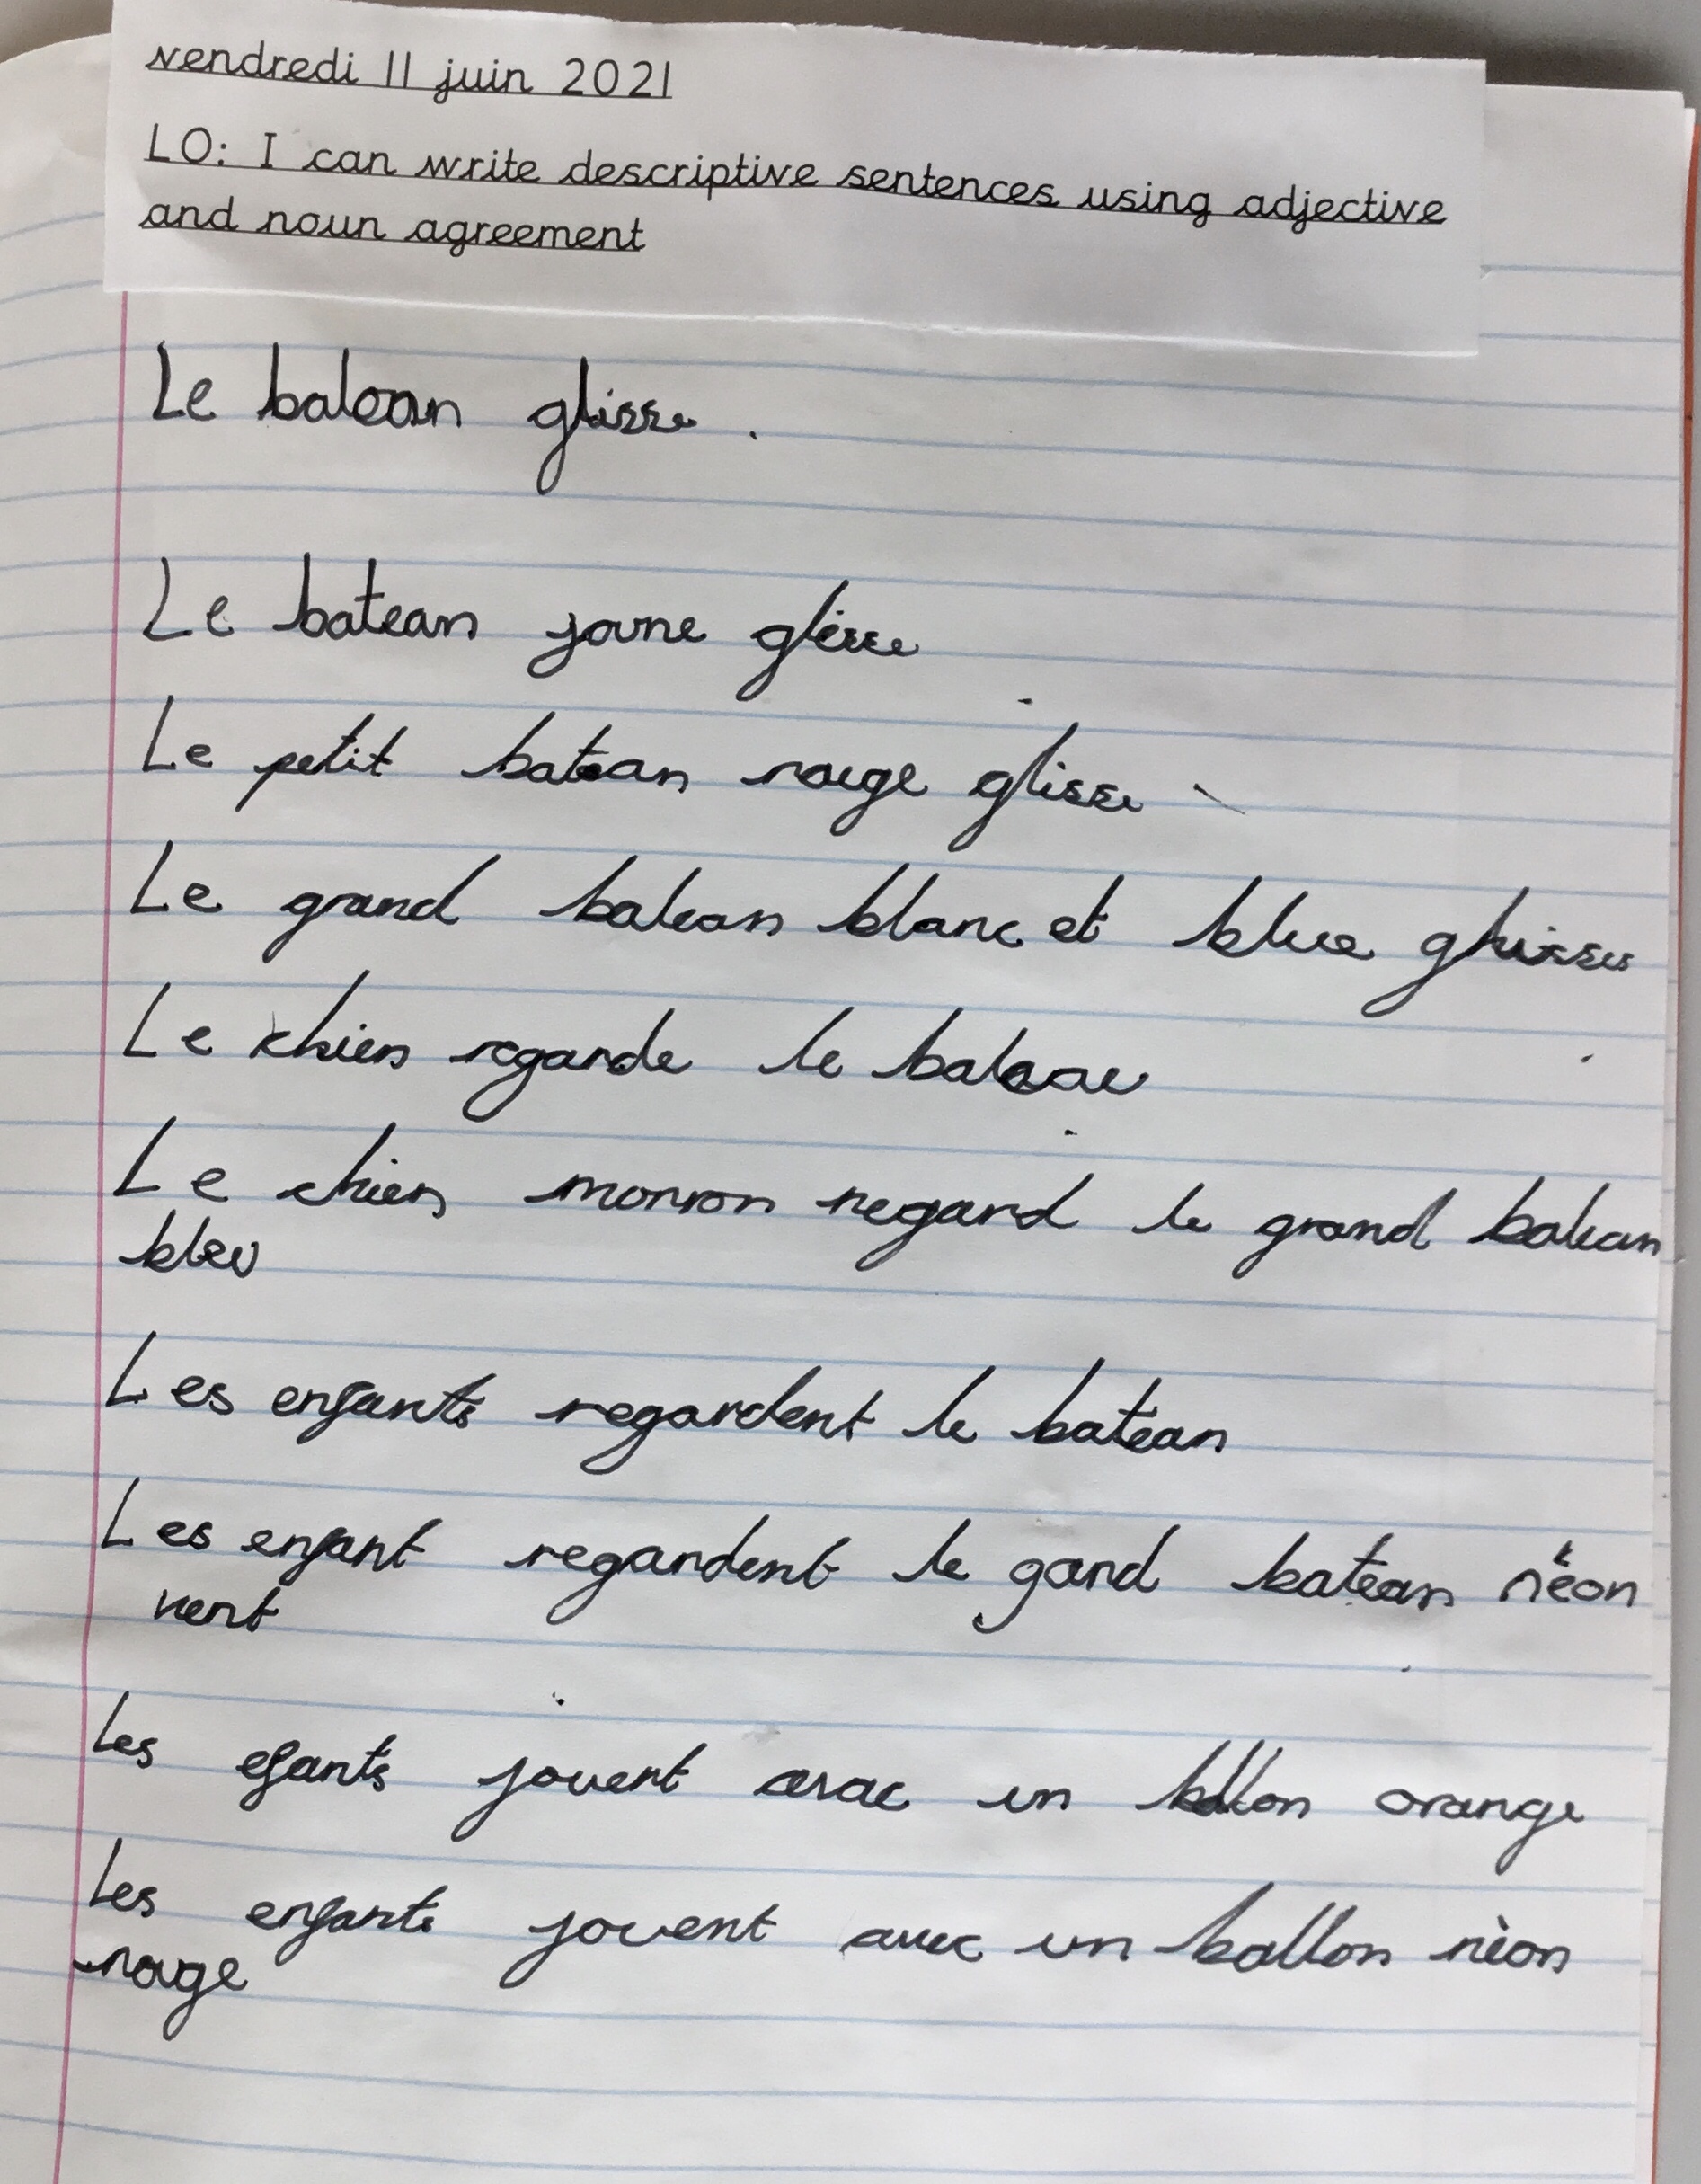 vendredi 11 juin 2021
LO: I can write descriptive sentences using adjective
and noun agreement
Le bateau glisse.
Le bateau joune glisse
Le petit bateau rouge glisse
Le grand bateau blanc et blue glisse
Le chien regarde le bateau
Le chien monron regard le grand bateau
bleu
Les enfants regardent le bateau
Les enfant regardent le gand bateau néon
vert
Les efants jouent avac un ballon orange
Les enfants jouent avec un ballon nèon
rouge